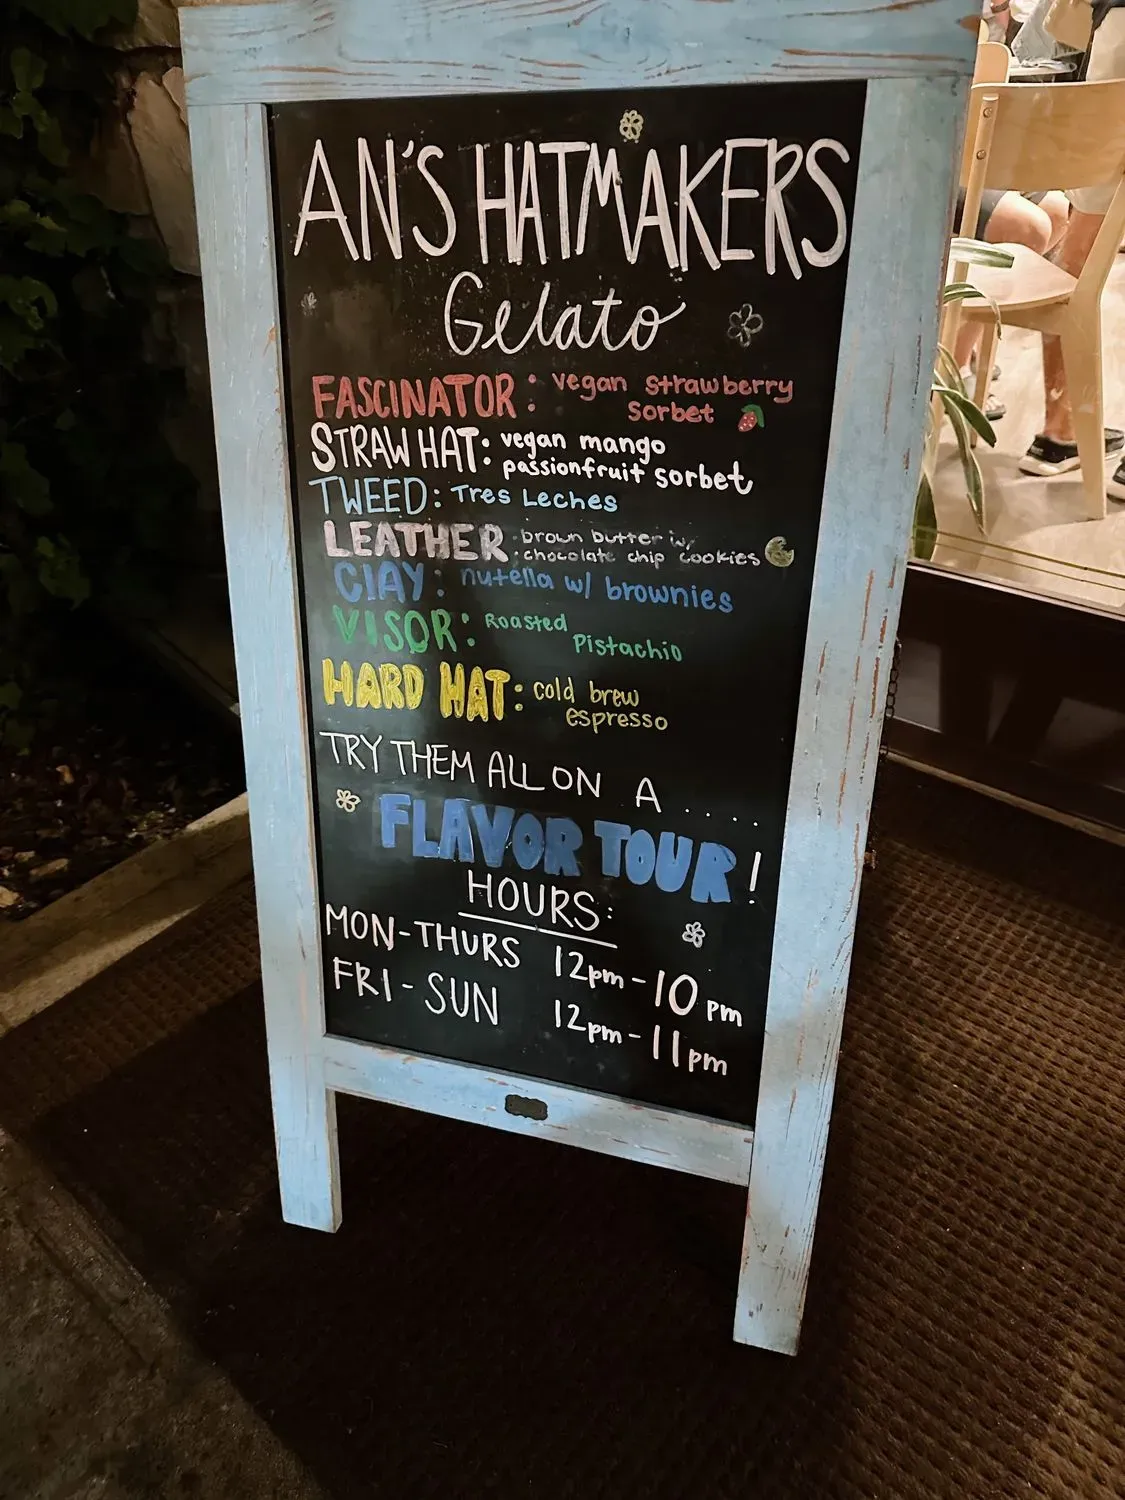 AN'S HATMAKERS
Gelato
FASCINATOR: vegan strawberry
sorbet
STRAW HAT: vegan mango
passionfruit sorbet
TWEED: Tres Leches
LEATHER: brown butter w/
chocolate chip cookies
CLAY: nutella w/ brownies
VISOR: Roasted
Pistachio
HARD HAT: cold brew
espresso
TRY THEM ALL ON A .....
FLAVOR TOUR!
HOURS:
MON-THURS 12pm-10pm
FRI-SUN 12pm-11pm